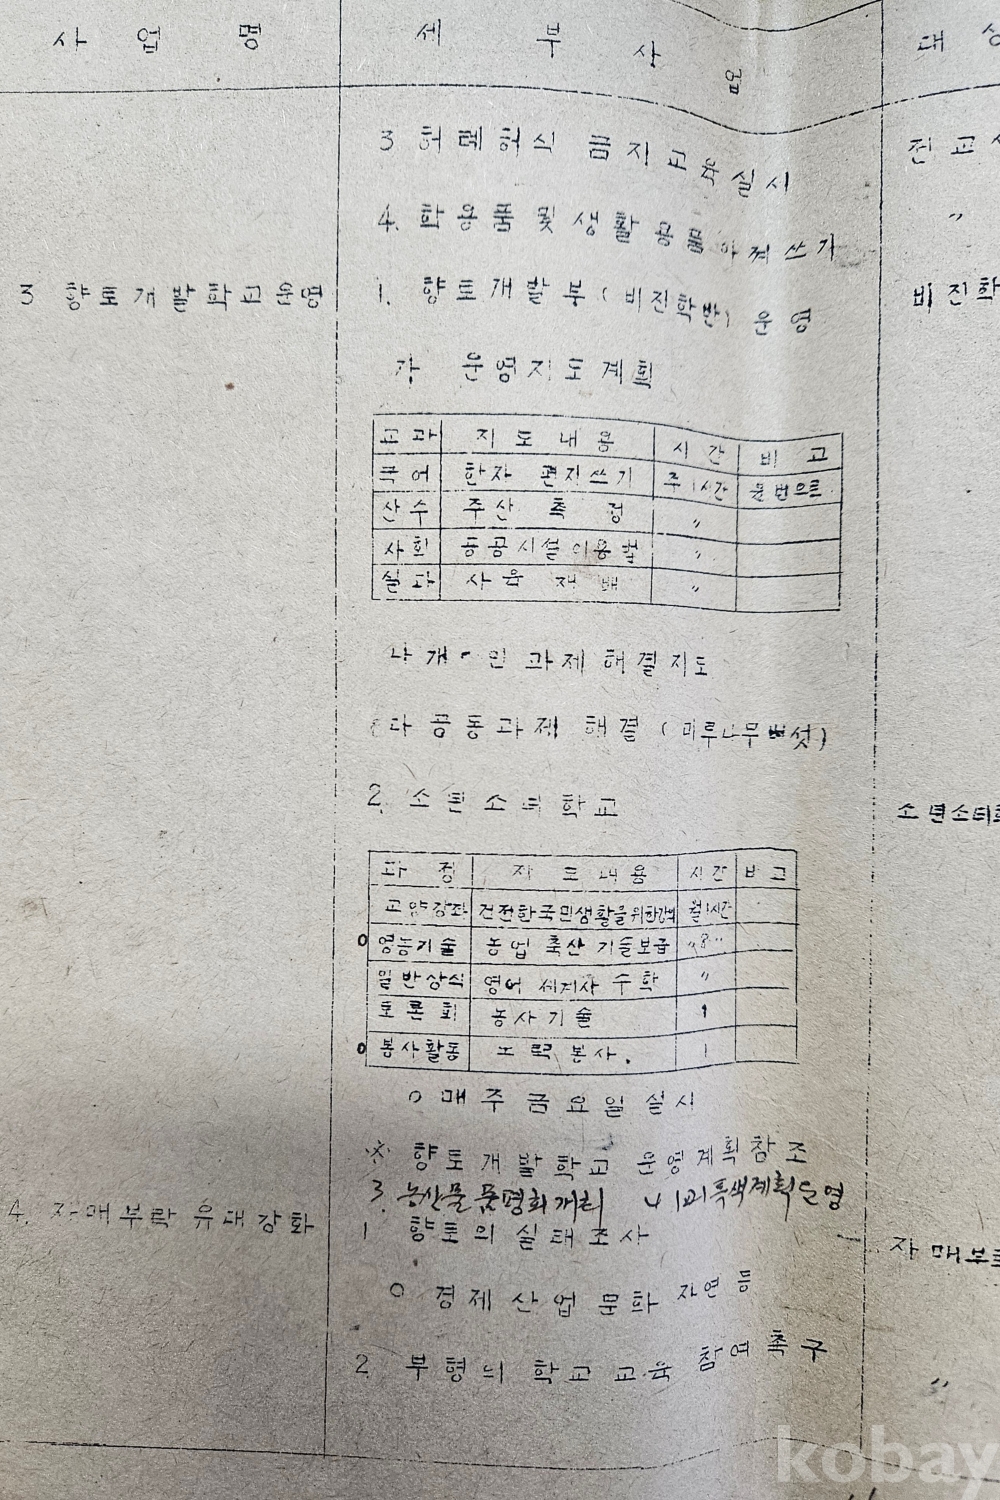 사 업 명 세 부 사 업 대 상
3 허례허식 금지교육실시 전교
4. 학용품 및 생활용품 아껴쓰기 〃
3 향토개발학교운영 1. 향토개발부(비진학반) 운영 비진학
가 운영지도계획
교과 지도내용 시간 비고
국어 한자 편지쓰기 주1시간 문법으로
산수 주산 측정 〃
사회 공공시설이용법 〃
실과 사육 재배 〃
나 개인과제해결지도
다 공동과제 해결 (미루나무버섯)
2. 소년소녀학교 소년소녀
과정 지도내용 시간 비고
교양강좌 건전한국민생활을위한강의 월1시간
영농기술 농업 축산 기술보급
일반상식 영어 세계사 수학 〃
토론회 농사기술
봉사활동 노력봉사.
○ 매주금요일실시
※ 향토개발학교 운영계획참조
3. 농산물품평회개최
4. 자매부락유대강화 1 향토의실태조사 자매부락
○ 경제산업문화 자연 등
2 부형의 학교교육 참여촉구 〃
kobay